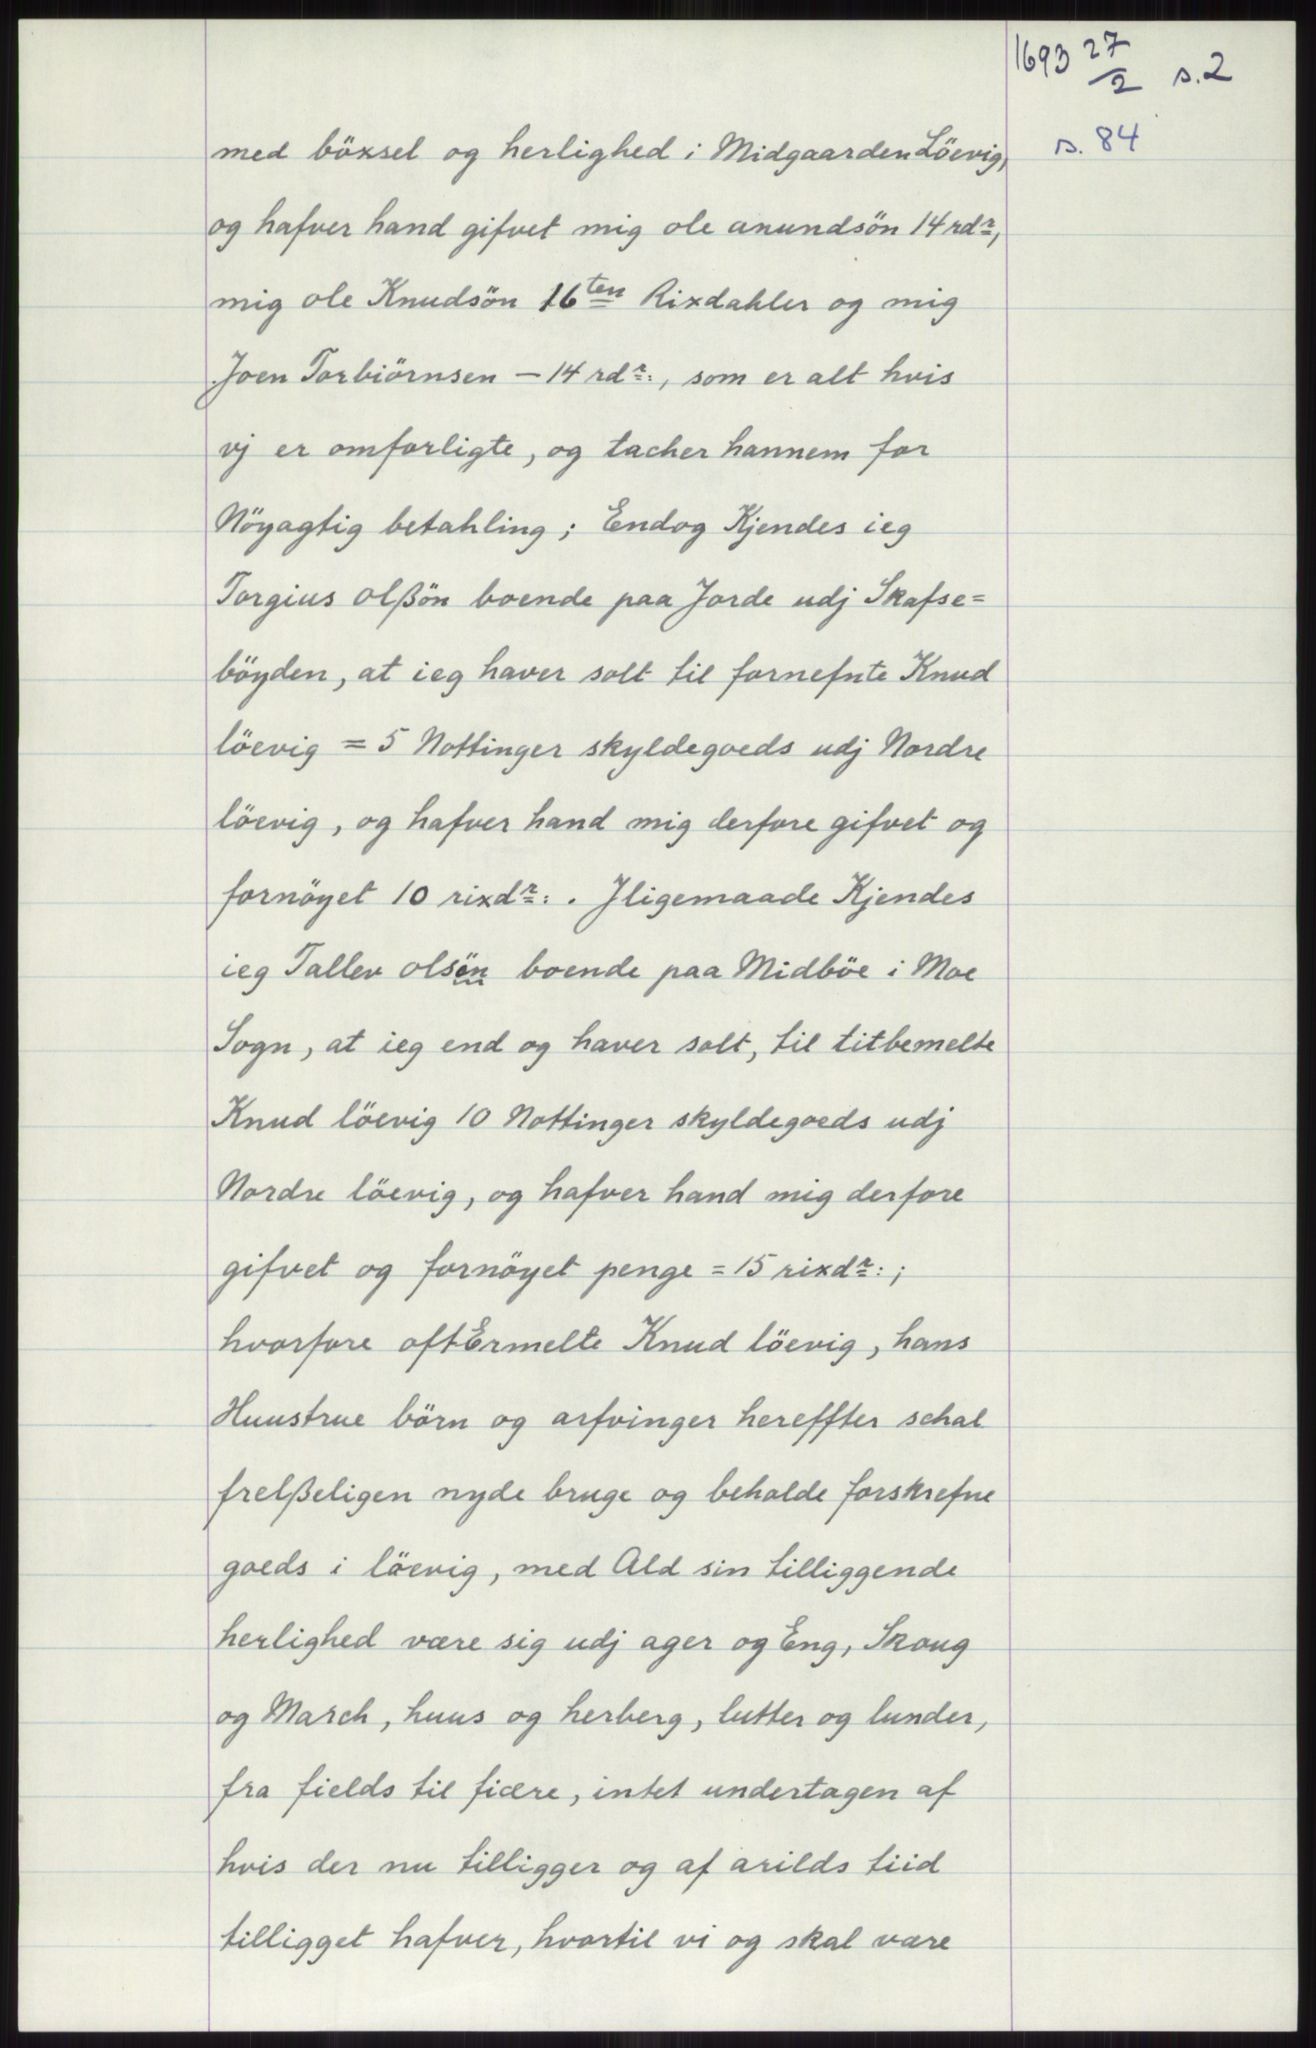 1693 27/2 s.2
s. 84
med böxsel og herlighed i Midgaarden Löevig,
og hafver hand gifvet mig ole anundsön 14 rdr,
mig ole Knudsön 16ten Rixdahler og mig
Joen Torbiörnsen – 14 rdr:, som er alt hvis
vj er omforligte, og tacher hannem for
Nöyagtig betahling; Endog Kjendes ieg
Torgius olßön boende paa Jorde udj Skafse=
böyden, at ieg haver solt til fornefnte Knud
löevig = 5 Nottinger skyldegoeds udj Nordre
löevig, og hafver hand mig derfore gifvet og
fornöyet 10 rixdr: . Jligemaade Kjendes
ieg Tallev olsön boende paa Midböe i Moe
Sogn, at ieg end og haver solt, til titbemelte
Knud löevig 10 Nottinger skyldegoeds udj
Nordre löevig, og hafver hand mig derfore
gifvet og fornöyet penge = 15 rixdr: ;
hvorfore oftErmelte Knud löevig, hans
Huustrue börn og arfvinger hereffter schal
frelßeligen nyde bruge og beholde forskrefne
goeds i löevig, med Ald sin tilliggende
herlighed være sig udj ager og Eng, Skoug
og March, huus og herberg, lutter og lunder,
fra fields til fiære, intet undertagen af
hvis der nu tilligger og af arilds tiid
tilligget hafver, hvortil vi og skal være